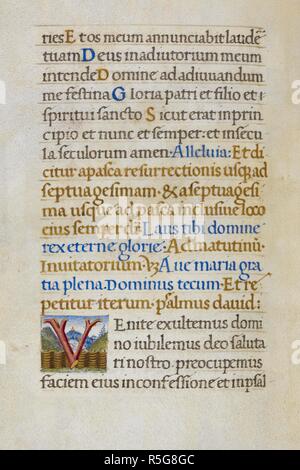 ries E t os meum annunciabit laudē
tuam D eus in adiutorium meum
intende D omine ad adiuuandum
me festina G loria patri et filio et s
spiritui sancto S icut erat in prin
cipio et nunc et semper: et in secu
la seculorum amen · Alleluia: Et di
citur a pasca resurrectionis usq; ad
septuagesimam · & a septuagesi
ma usque ad pasca inclusiue loco
eius semper dr̄ L aus tibi domine
rex eterne glorie: Ad matutinū ·
Inuitatorium · A ue maria gra
tia plena · Dominus tecum · Et re
petitur iterum · psalmus dauid:
V Enite exultemus domi
no iubilemus deo saluta
ri nostro · preocupemus
faciem eius in confessione et in psal
alamy
Image ID: R5G8GC
www.alamy.com